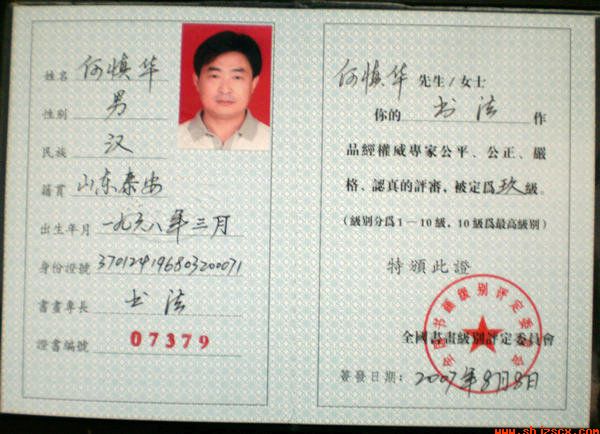 姓名 何慎华
性别 男
民族 汉
籍貫 山东泰安
出生年月 一九六八年三月
身份證號 370124196803200071
書畫專長 书法
證書編號 07379
何慎华 先生/女士
你的 书法 作
品經權威專家公平、公正、嚴
格、認真的評審，被定爲玖級。
(級別分爲1—10級，10級爲最高級別)
特頒此證
全國書畫級別評定委員會
簽發日期：2007年8月8日
www.shjzscx.com